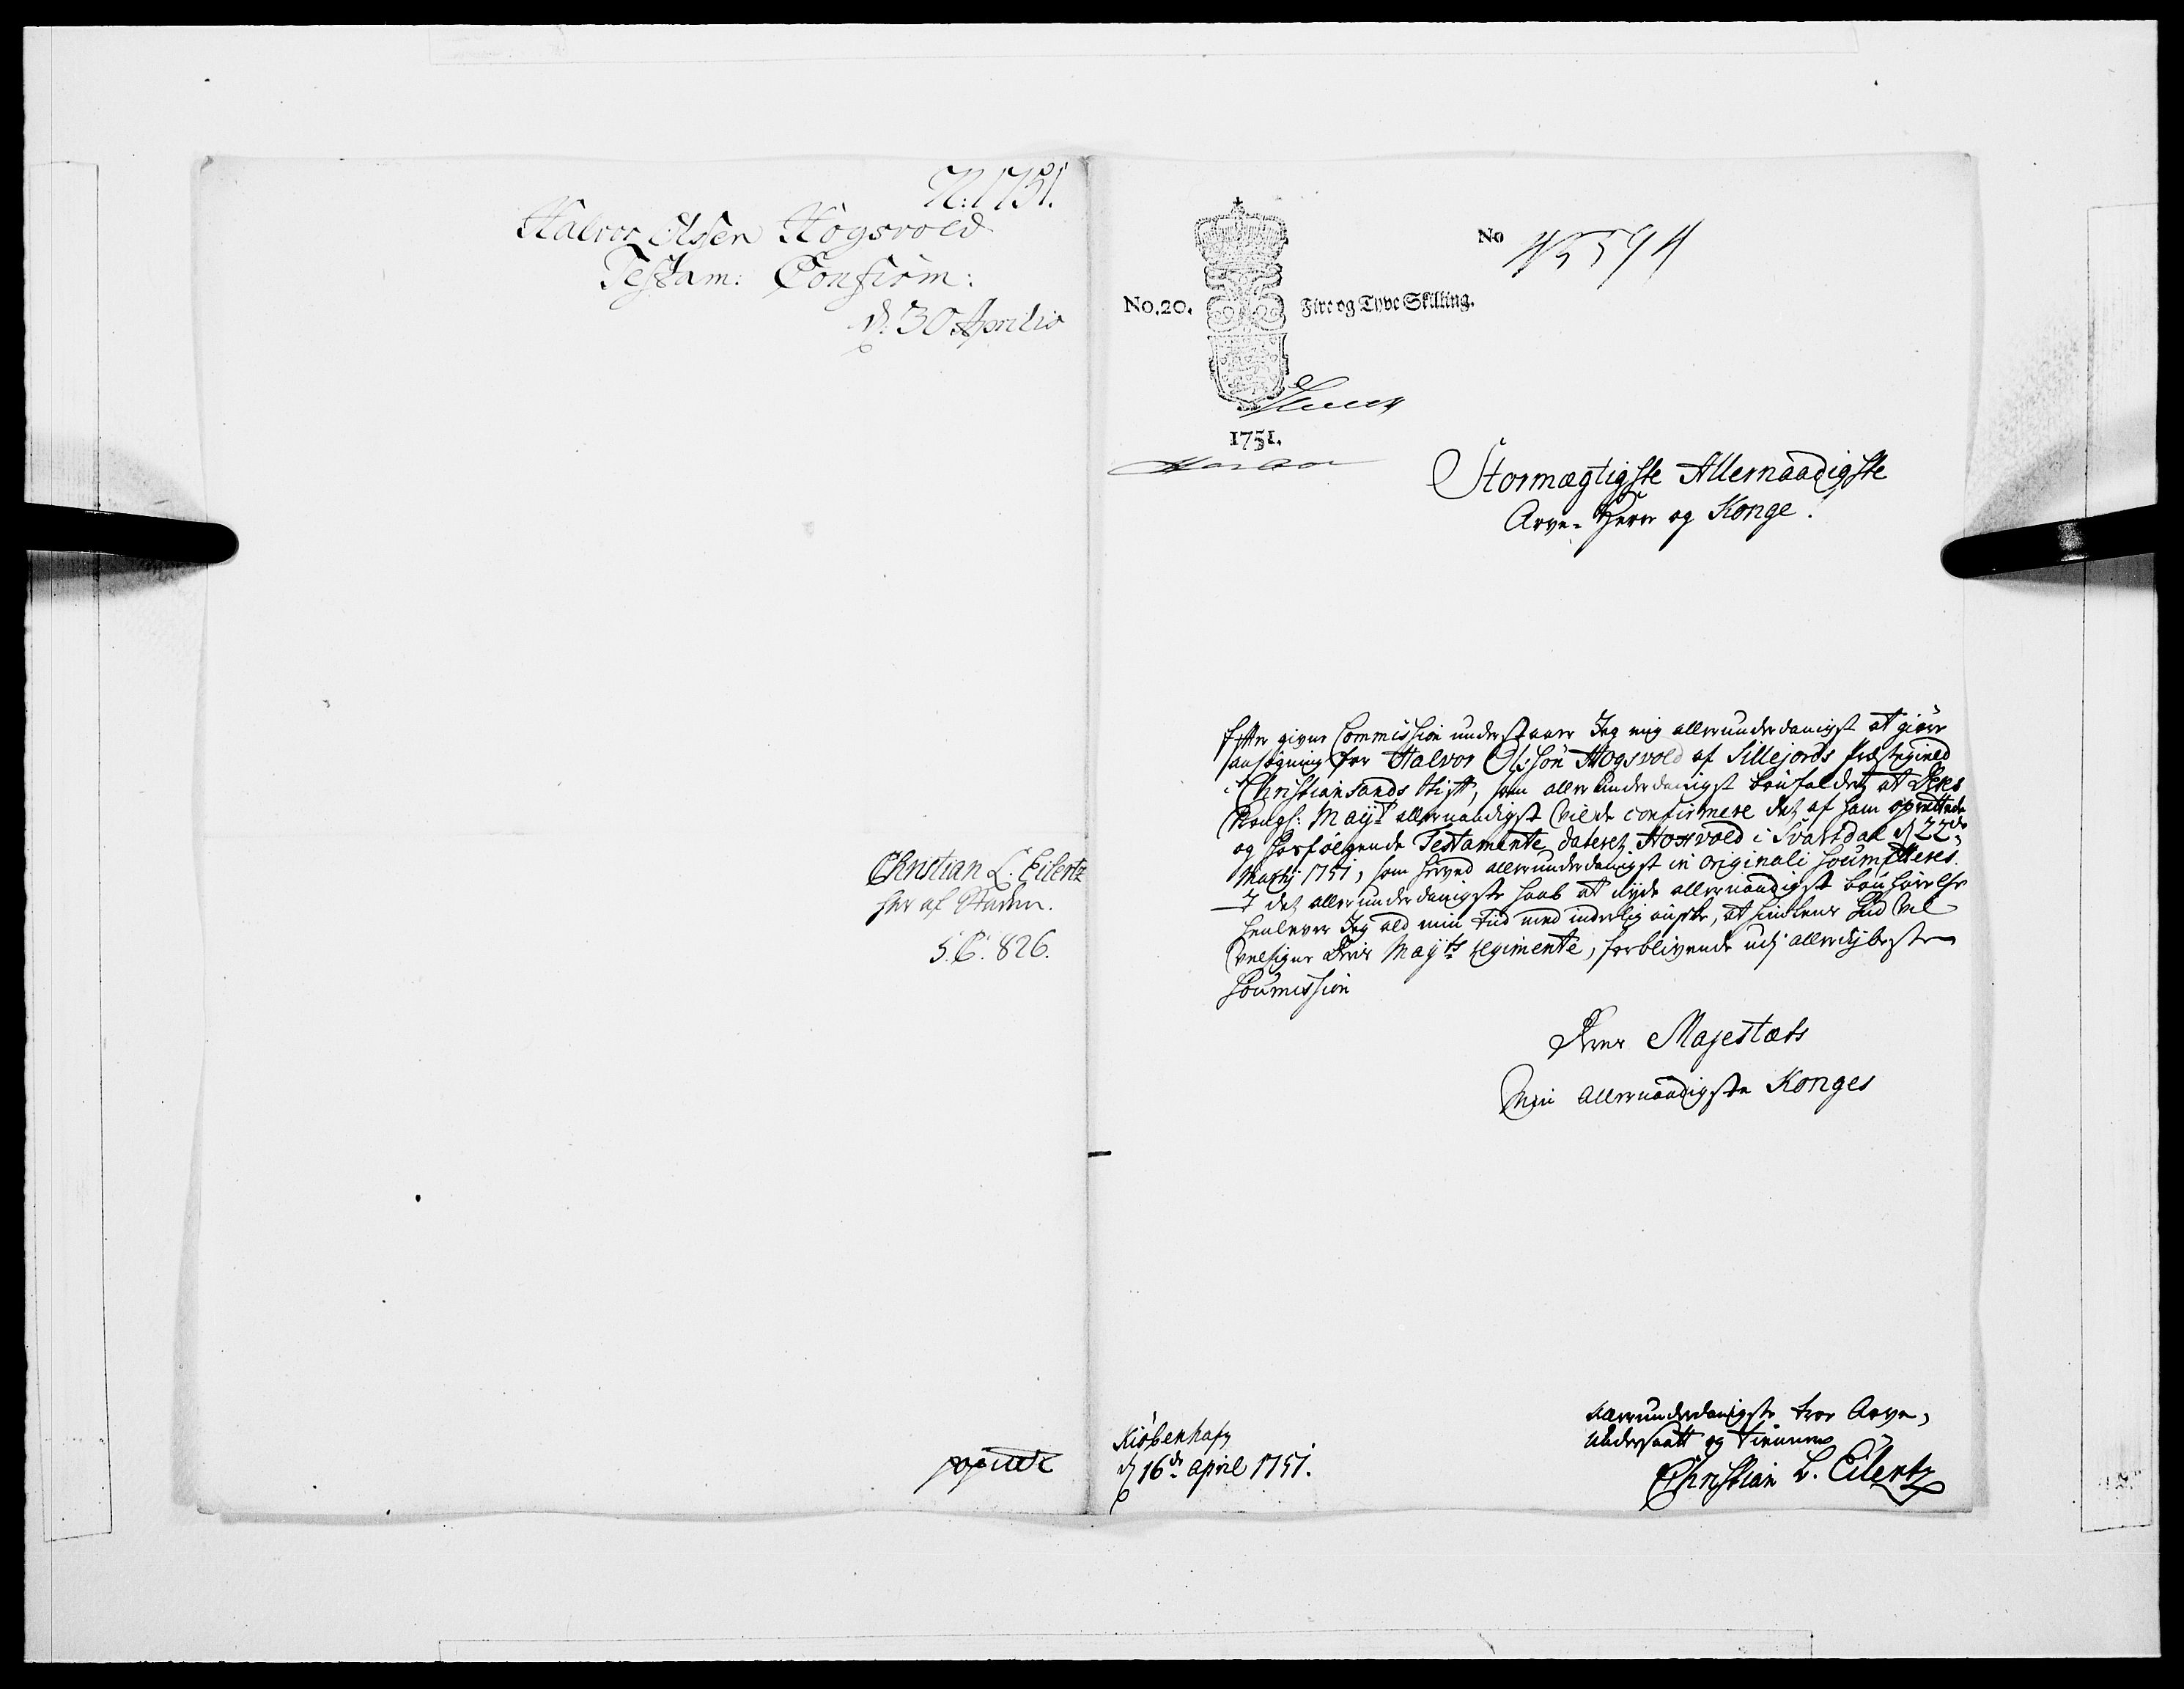 N: 1751.
Halvor Olssen Hogsvold
Testam: Confirm:
d. 30 Aprilis
Christian L. Eilertz
her af Staden.
S. C. 826.
No 4559
No. 20.
Fire og Tyve Skilling.
1751.
Stormægtigste Allernaadigste
Arve-Herre og Konge!
Efter given Commission understaaer Jeg mig allerunderdanigst at giøre
ansøgning for Halvor Olssøn Hogsvold af Sillejords Præstegield
i Christiansands Stift, som allerunderdanigst bønfalder, at Deres
Kongl: Mayt allernaadigst vilde confirmere det af ham oprettede
og hosfølgende Testamente, dateret Hogsvold i Svartdal d 22de
Martij 1751, som herved allerunderdanigst in originali soumitteres.
I det allerunderdanigste haab at nyde allernaadigst bønhørelse
henlever Jeg ald min tid med inderlig ønske, at himlens Gud vil
velsigne Deris Mayts regimente, forblivende udj allerdybeste
soumission
Deres Majestæts
Min Allernaadigste Konges
Kiöbenhafn
d 16de April 1751.
Allerunderdanigste troe Arve-
Undersaatt og tienere
Christian L. Eilertz